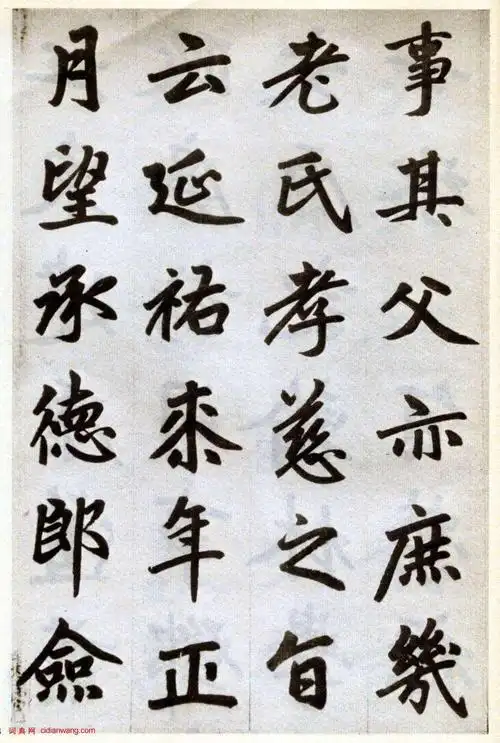 事其父亦庶幾
老氏孝慈之旨
云延祐桼年正
月望承德郎僉
词典网 cidianwang.com